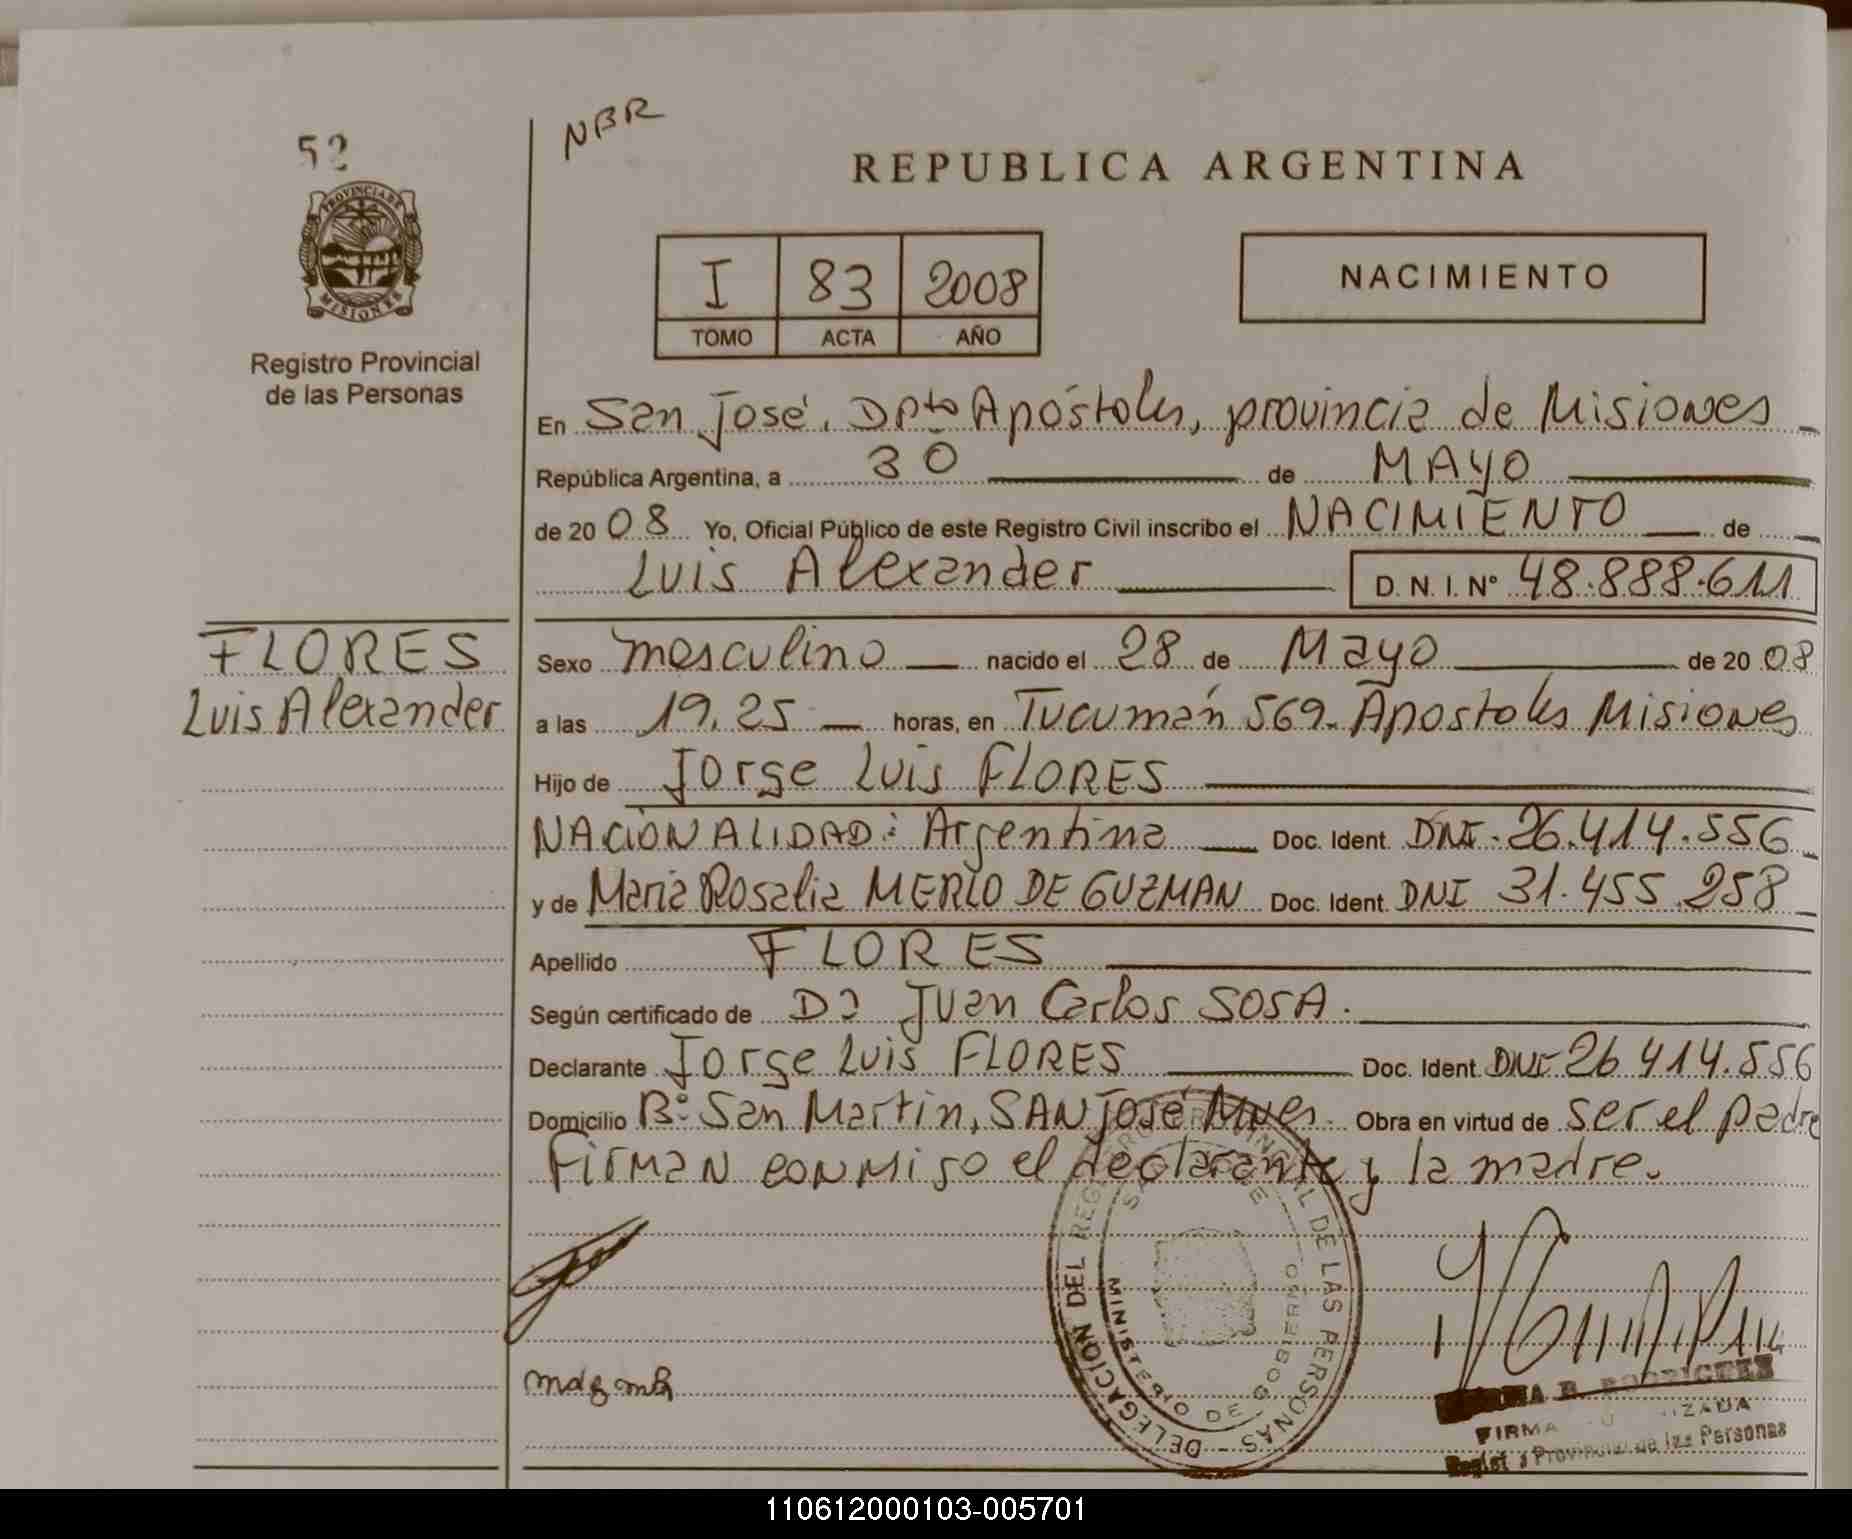 52
NBR
REPUBLICA ARGENTINA
PROVINCIA DE
MISIONES
Registro Provincial
de las Personas
I 83 2008
TOMO ACTA AÑO
NACIMIENTO
En San José, Dpto Apóstoles, provincia de Misiones
República Argentina, a 30 de MAYO
de 2008 Yo, Oficial Público de este Registro Civil inscribo el NACIMIENTO de
Luis Alexander D.N.I. Nº 48.888.611
FLORES
Luis Alexander
Sexo masculino nacido el 28 de Mayo de 2008
a las 19.25 horas, en Tucumán 569. Apostoles Misiones
Hijo de Jorge Luis FLORES
NACIONALIDAD: Argentina Doc. Ident. DNI. 26.414.556
y de Maria Rosalia MERLO DE GUZMAN Doc. Ident. DNI 31.455.258
Apellido FLORES
Según certificado de Dr Juan Carlos SOSA.
Declarante Jorge Luis FLORES Doc. Ident. DNI 26.414.556
Domicilio Bº San Martin, SAN José Mnes. Obra en virtud de ser el padre
Firman conmigo el declarante y la madre.
DELEGACION DEL REGISTRO PROVINCIAL DE LAS PERSONAS
SAN JOSE
MINISTERIO DE GOBIERNO
B. RODRIGUEZ
FIRMA
Provincial de las Personas
110612000103-005701